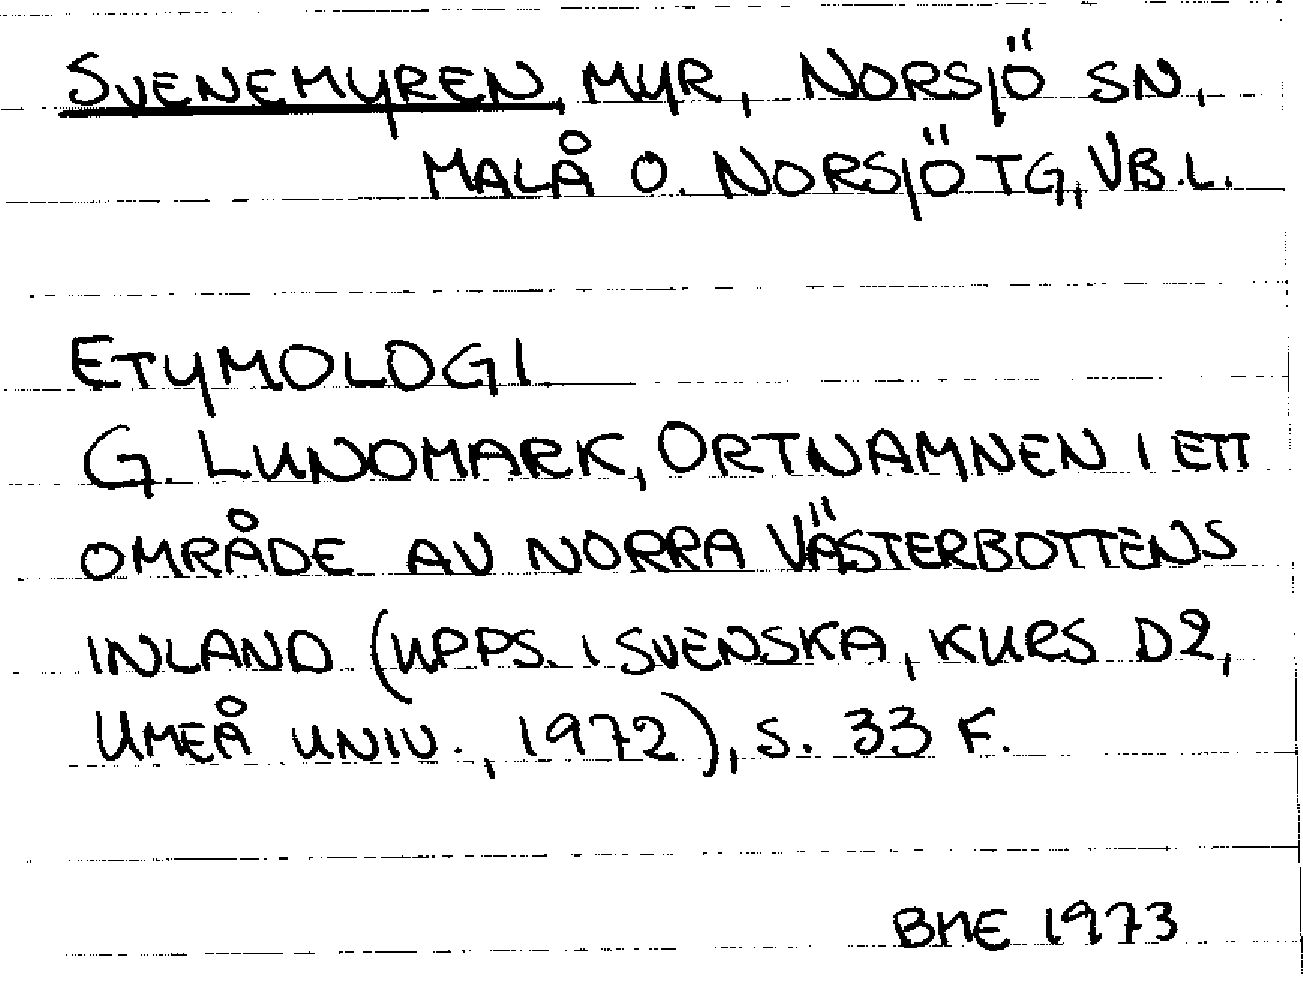 SVENEMYREN, MYR, NORSJÖ SN,
MALÅ O. NORSJÖ TG, VB.L.
ETYMOLOGI
G. LUNDMARK, ORTNAMNEN I ETT
OMRÅDE AV NORRA VÄSTERBOTTENS
INLAND (UPPS. I SVENSKA, KURS D2,
UMEÅ UNIV., 1972), S. 33 F.
BME 1973